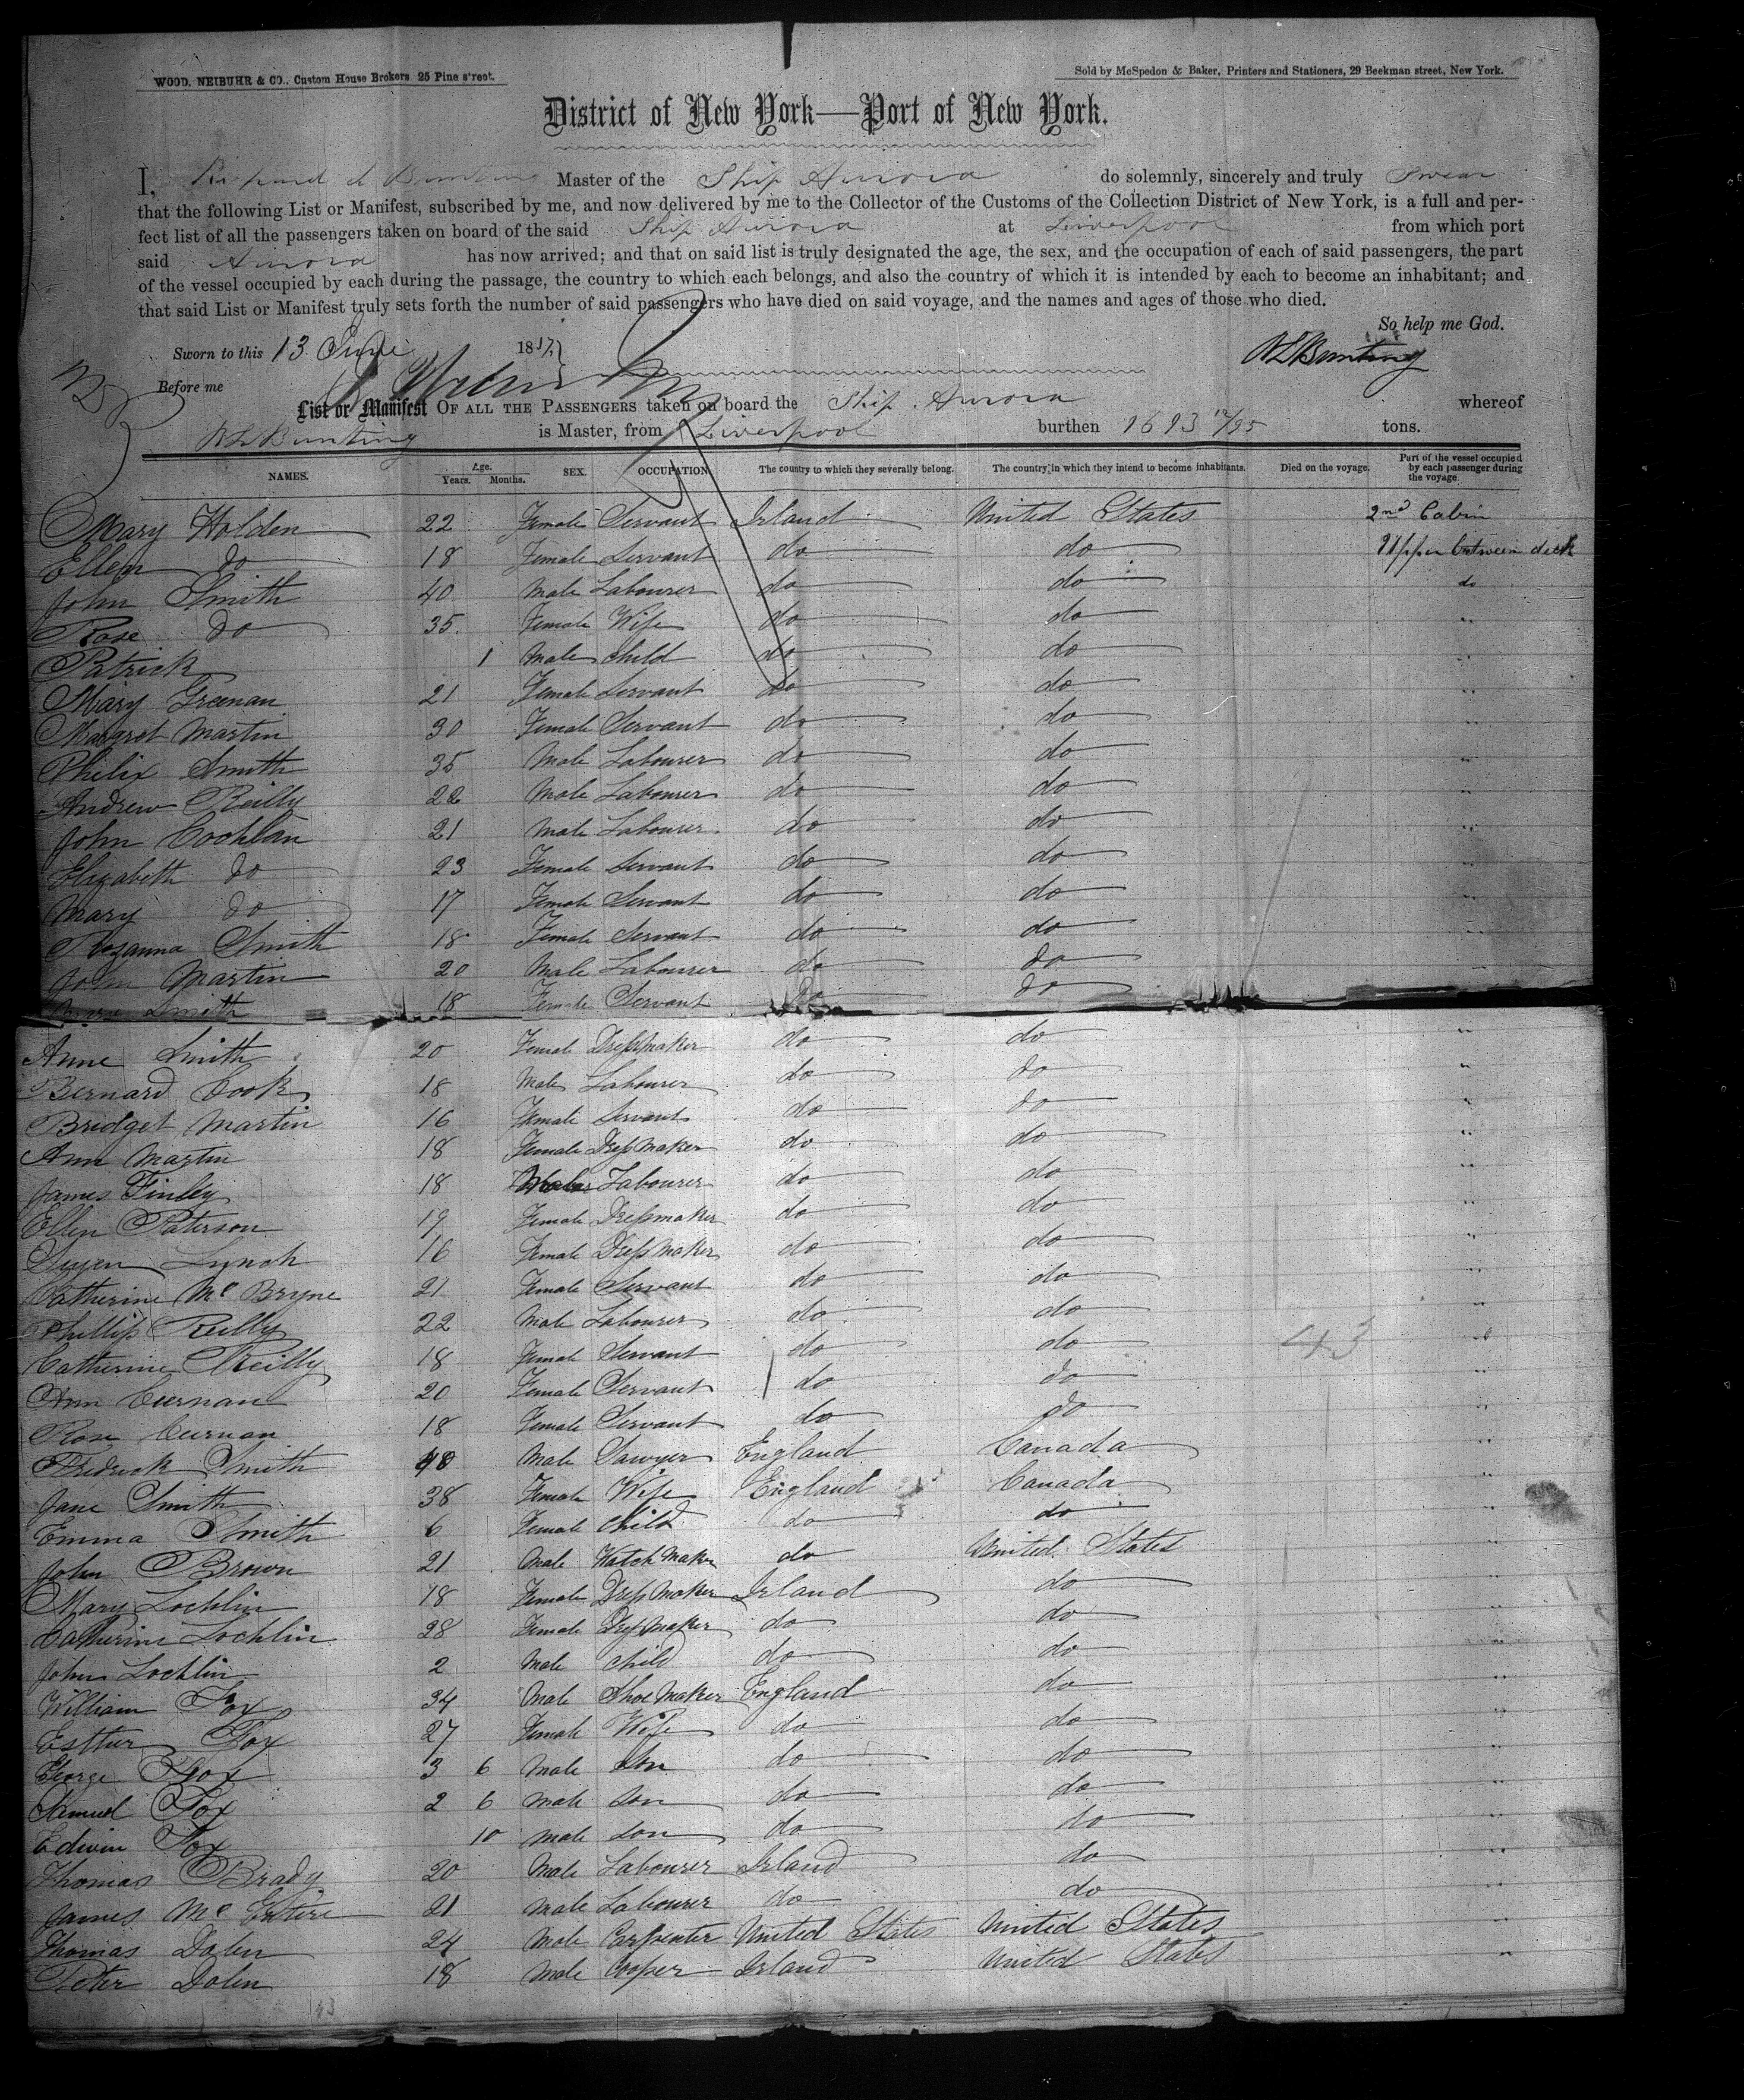 WOOD, NEIBUHR & CO., Custom House Brokers. 25 Pine street.
Sold by McSpedon & Baker, Printers and Stationers, 29 Beekman street, New York.
District of New York—Port of New York.
I, Bunting Master of the Ship Aurora do solemnly, sincerely and truly Swear
that the following List or Manifest, subscribed by me, and now delivered by me to the Collector of the Customs of the Collection District of New York, is a full and per-
fect list of all the passengers taken on board of the said Ship Aurora at Liverpool from which port
said Aurora has now arrived; and that on said list is truly designated the age, the sex, and the occupation of each of said passengers, the part
of the vessel occupied by each during the passage, the country to which each belongs, and also the country of which it is intended by each to become an inhabitant; and
that said List or Manifest truly sets forth the number of said passengers who have died on said voyage, and the names and ages of those who died.
So help me God.
Sworn to this 13 June 18 RLBunting
Before me
List or Manifest OF ALL THE PASSENGERS taken on board the Ship Aurora whereof
RL Bunting is Master, from Liverpool burthen 1693 tons.
NAMES. Age. Years. Months. SEX. OCCUPATION. The country to which they severally belong. The country in which they intend to become inhabitants. Died on the voyage. Part of the vessel occupied by each passenger during the voyage.
Mary Holden 22 Female Servant Irland United States 2nd Cabin
Ellen do 18 Female Servant do do Upper between deck
John Smith 40 Male Labourer do do do
Rose do 35 Female Wife do do "
Patrick 1 Male Child do do "
Mary Greenan 21 Female Servant do do "
Margret Martin 30 Female Servant do do "
Philix Smith 35 Male Labourer do do "
Andrew Reilly 22 Male Labourer do do "
John Cochlan 21 Male Labourer do do "
Elizabeth do 23 Female Servant do do "
Mary do 17 Female Servant do do "
Rozanna Smith 18 Female Servant do do "
John Martin 20 Male Labourer do do "
Smith 18 Female Servant do do
Anne Smith 20 Female Dressmaker do do "
Bernard Cook 18 Male Labourer do do "
Bridget Martin 16 Female Servant do do "
Ann Martin 18 Female Dressmaker do do "
James Finley 18 Male Labourer do do "
Ellen Paterson 19 Female Dressmaker do do "
Lynch 16 Female Dressmaker do do "
Catherine Mc Bryne 21 Female Servant do do "
Phillip Reilly 22 Male Labourer do do "
Catherine Reilly 18 Female Servant do do "
43
Ann Cuernan 20 Female Servant do do "
Rose Cuernan 18 Female Servant do do "
Fredrick Smith 48 Male Sawyer England Canada "
Jane Smith 38 Female Wife England Canada "
Emma Smith 6 Female Child do do "
John Brown 21 Male Watch Maker do United States "
Mary Lochlin 18 Female Dress Maker Irland do "
Catherine Lochlin 28 Female Dressmaker do do "
John Lochlin 2 Male Child do do "
William Fox 34 Male Shoe Maker England do "
Esther Fox 27 Female Wife do do "
George Fox 3 6 Male Son do do "
Samuel Fox 2 6 Male Son do do "
Edwin Fox 10 Male Son do do "
Thomas Brady 20 Male Labourer Irland do "
James Mc Entire 21 Male Labourer do do "
Thomas Dolen 24 Male Carpenter United States United States "
Peter Dolen 18 Male Cooper Irland United States "